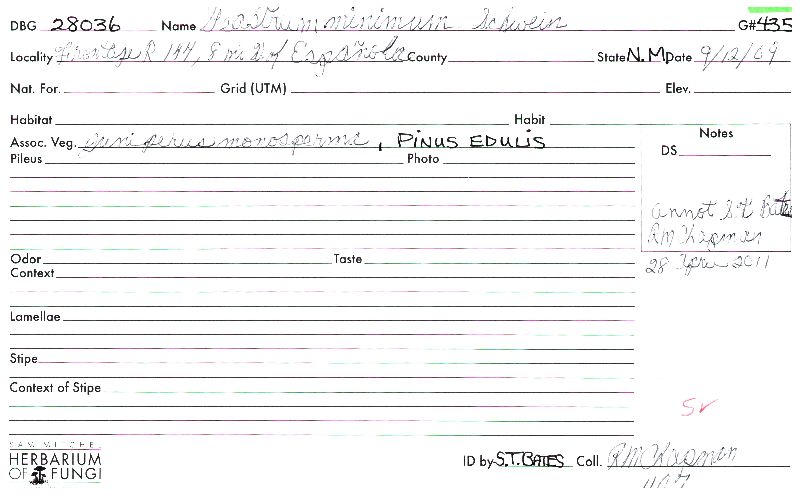 DBG 28036 Name Geastrum minimum Schwein G#435
Locality Frontage R 144, 8 mi of Española County State N.M Date 9/12/69
Nat. For. Grid (UTM) Elev.
Habitat Habit
Assoc. Veg. Juniperus monosperma, PINUS EDULIS
Notes
DS
Pileus Photo
annot S.T. Bates
RM Chapman
28 April 2011
Odor Taste
Context
Lamellae
Stipe
Context of Stipe
Sr
SAM MITCHEL
HERBARIUM
OF FUNGI
ID by S.T. BATES Coll. RM Chapman